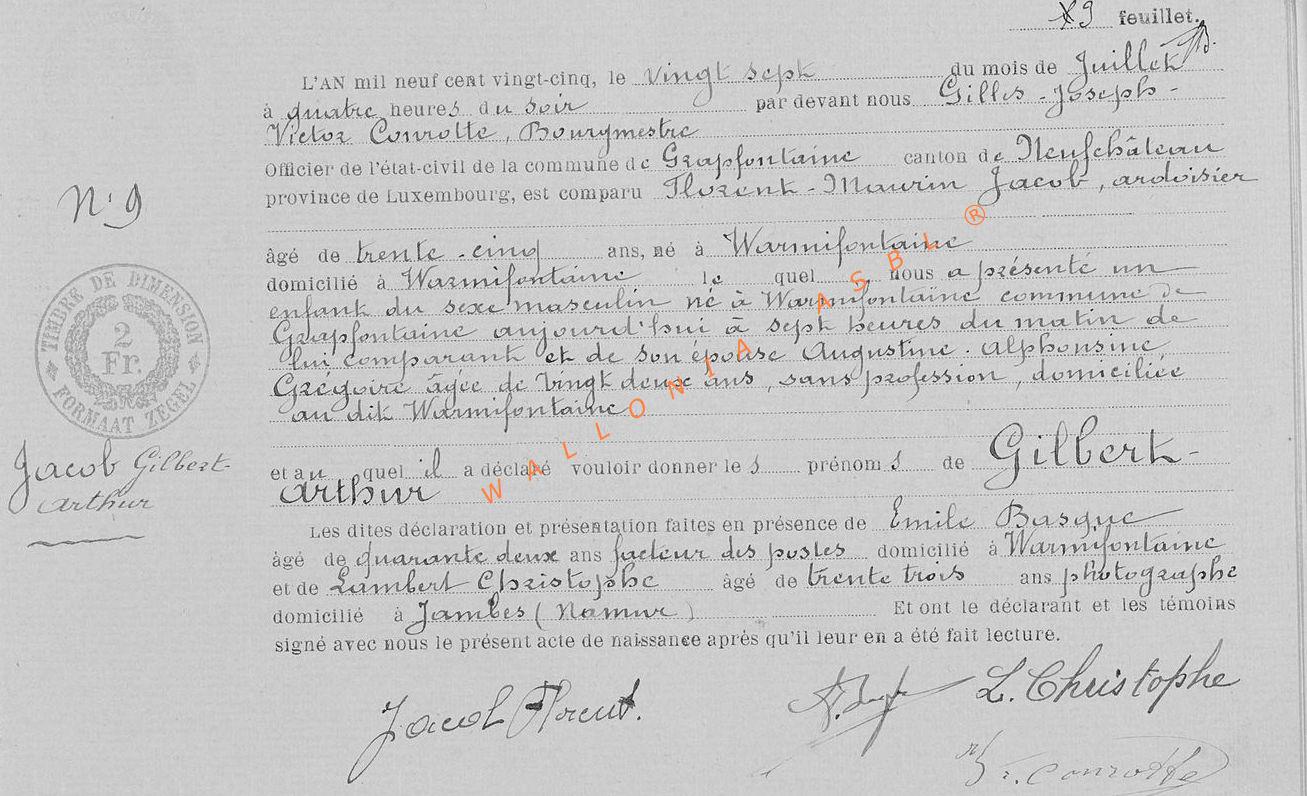 9 feuillet.
L'AN mil neuf cent vingt-cinq, le vingt sept du mois de Juillet
à quatre heures du soir par devant nous Gilles-Joseph-
Victor Conrotte, Bourgmestre
Officier de l'état-civil de la commune de Grapfontaine canton de Neufchâteau
province de Luxembourg, est comparu Florent-Maurin Jacob, ardoisier
N° 9
âgé de trente-cinq ans, né à Warmifontaine
domicilié à Warmifontaine le quel nous a présenté un
enfant du sexe masculin né à Warmifontaine commune de
Grapfontaine aujourd'hui à sept heures du matin de
lui comparant et de son épouse Augustine-Alphonsine
Grégoire âgée de vingt deux ans, sans profession, domiciliée
au dit Warmifontaine
TIMBRE DE DIMENSION
2
Fr.
FORMAAT ZEGEL
WALLONIA ASBL ®
Jacob Gilbert-
Arthur
et au quel il a déclaré vouloir donner les prénoms de Gilbert-
Arthur
Les dites déclaration et présentation faites en présence de Emile Basque
âgé de quarante deux ans facteur des postes domicilié à Warmifontaine
et de Lambert Christophe âgé de trente trois ans photographe
domicilié à Jambes (Namur) Et ont le déclarant et les témoins
signé avec nous le présent acte de naissance après qu'il leur en a été fait lecture.
Jacob Florent.
L. Christophe
Conrotte